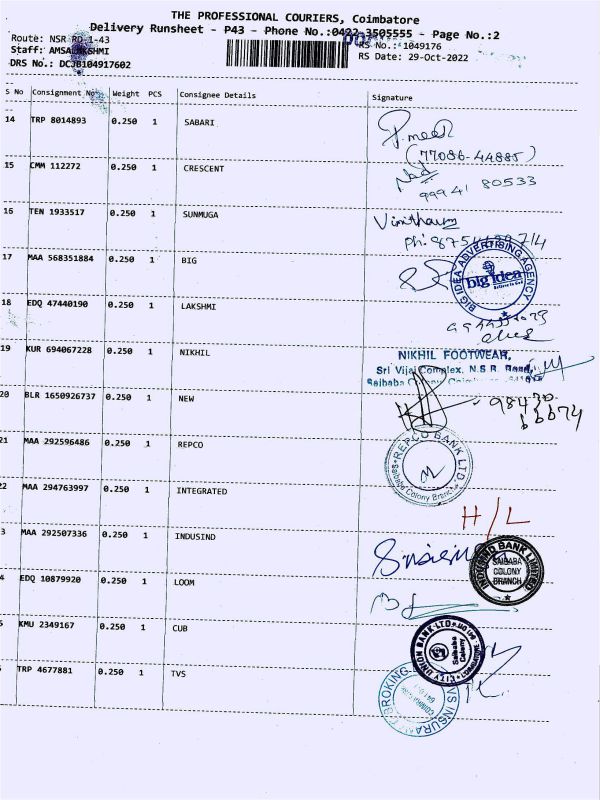 THE PROFESSIONAL COURIERS, Coimbatore
Delivery Runsheet - P43 - Phone No.:0422-3505555 - Page No.:2
Route: NSR RD-1-43
RS No.:1049176
Staff: AMSALAKSHMI
RS Date: 29-Oct-2022
DRS No.: DCJB104917602
S No Consignment No Weight PCS Consignee Details Signature
14 TRP 8014893 0.250 1 SABARI
(77086-44885)
15 CMM 112272 0.250 1 CRESCENT
99941 80533
16 TEN 1933517 0.250 1 SUNMUGA
17 MAA 568351884 0.250 1 BIG
BIG IDEA ADVERTISING AGENCY
big idea
18 EDQ 47440190 0.250 1 LAKSHMI
19 KUR 694067228 0.250 1 NIKHIL
NIKHIL FOOTWEAR,
Sri Vijai Complex, N.S.R. Road,
Saibaba Colony
20 BLR 1650926737 0.250 1 NEW
98430
21 MAA 292596486 0.250 1 REPCO
REPCO BANK LTD
Saibaba Colony Branch
22 MAA 294763997 0.250 1 INTEGRATED
H/L
3 MAA 292507336 0.250 1 INDUSIND
INDUSIND BANK LIMITED
SAIBABA
COLONY
BRANCH
4 EDQ 10879920 0.250 1 LOOM
5 KMU 2349167 0.250 1 CUB
CITY UNION BANK LTD.
Saibaba
Colony
TRP 4677881 0.250 1 TVS
TVS INSURANCE BROKING